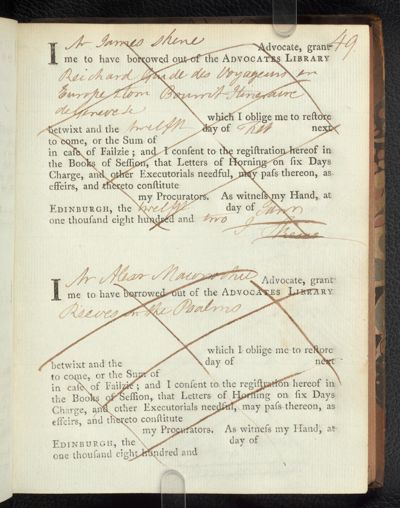 49
I Mr James Skene Advocate, grant
me to have borrowed out of the ADVOCATES LIBRARY
Reichard Guide des Voyageurs en
Europe Bourrit Itineraire
de Geneve
which I oblige me to reſtore
betwixt and the twelfth day of next
to come, or the Sum of
in caſe of Failzie; and I conſent to the regiſtration hereof in
the Books of Seſſion, that Letters of Horning on ſix Days
Charge, and other Executorials needful, may paſs thereon, as
effeirs, and thereto conſtitute
my Procurators. As witneſs my Hand, at
EDINBURGH, the twelfth day of
one thouſand eight hundred and two
Skene
I Mr Alexr Advocate, grant
me to have borrowed out of the ADVOCATES LIBRARY
Reeves on the Psalms
which I oblige me to reſtore
betwixt and the day of next
to come, or the Sum of
in caſe of Failzie; and I conſent to the regiſtration hereof in
the Books of Seſſion, that Letters of Horning on ſix Days
Charge, and other Executorials needful, may paſs thereon, as
effeirs, and thereto conſtitute
my Procurators. As witneſs my Hand, at
EDINBURGH, the day of
one thouſand eight hundred and